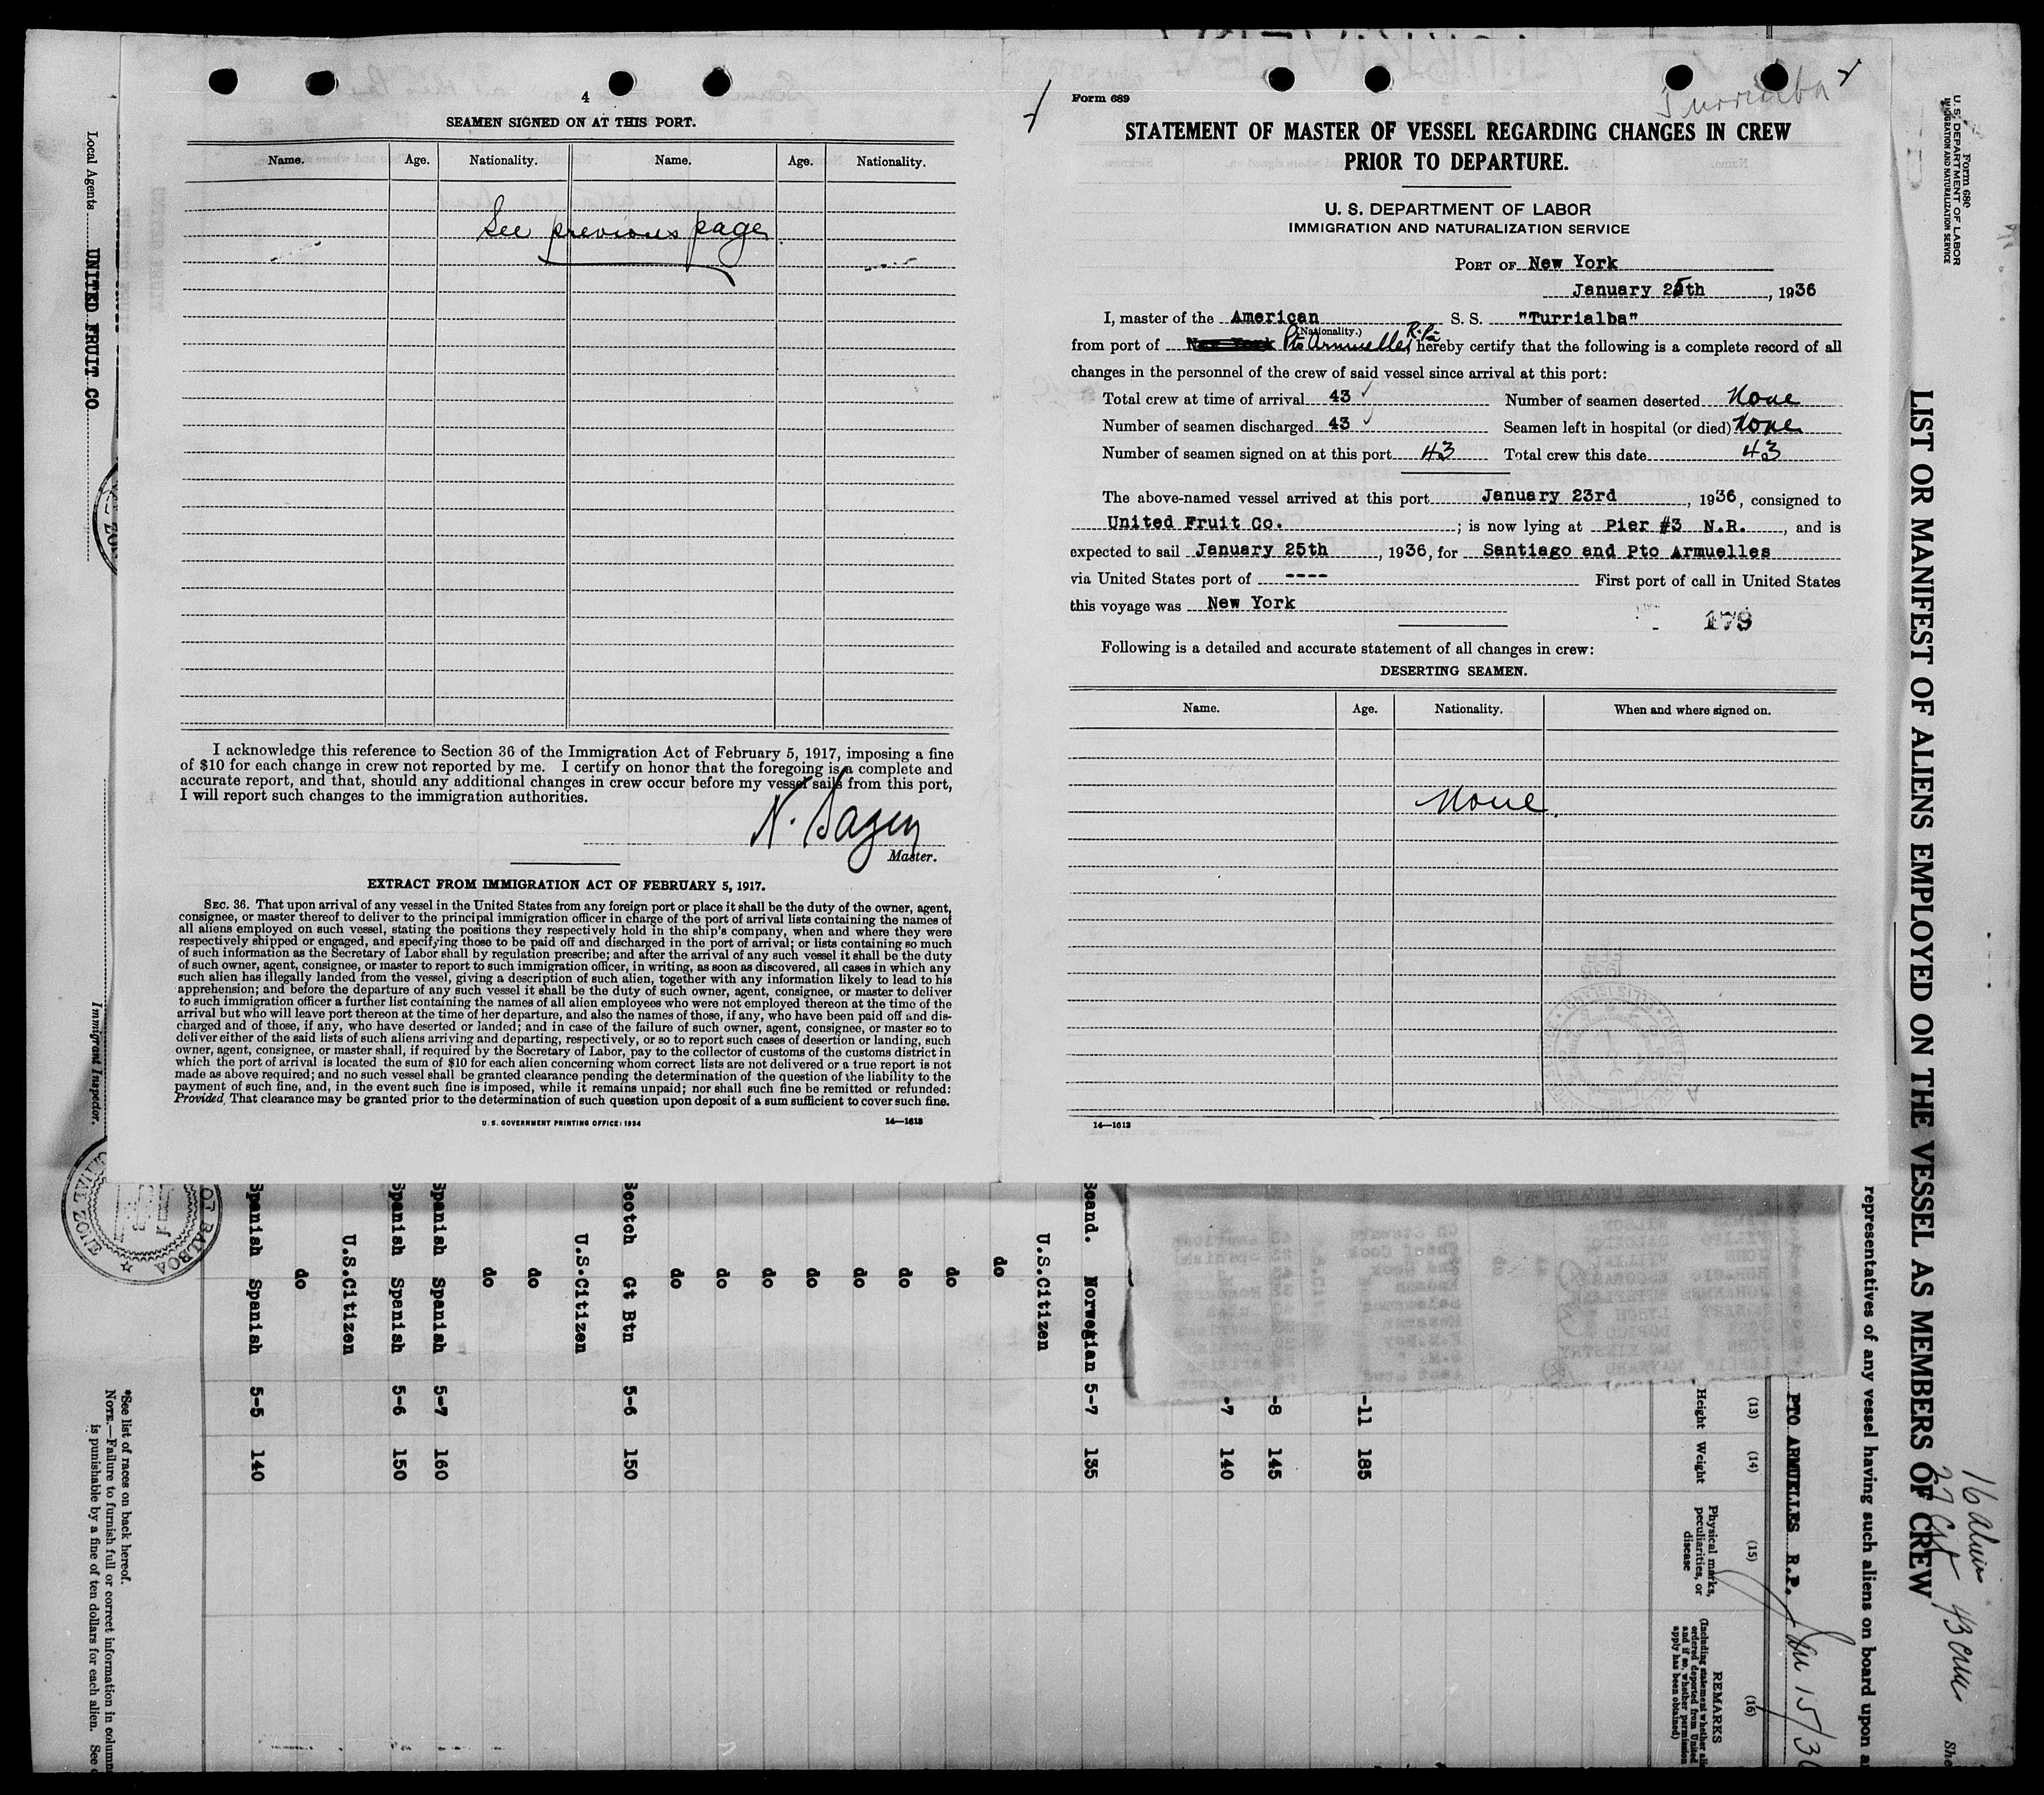 4
SEAMEN SIGNED ON AT THIS PORT.
Name. Age. Nationality. Name. Age. Nationality.
See previous page
I acknowledge this reference to Section 36 of the Immigration Act of February 5, 1917, imposing a fine
of $10 for each change in crew not reported by me. I certify on honor that the foregoing is a complete and
accurate report, and that, should any additional changes in crew occur before my vessel sails from this port,
I will report such changes to the immigration authorities.
Master.
EXTRACT FROM IMMIGRATION ACT OF FEBRUARY 5, 1917.
SEC. 36. That upon arrival of any vessel in the United States from any foreign port or place it shall be the duty of the owner, agent,
consignee, or master thereof to deliver to the principal immigration officer in charge of the port of arrival lists containing the names of
all aliens employed on such vessel, stating the positions they respectively hold in the ship's company, when and where they were
respectively shipped or engaged, and specifying those to be paid off and discharged in the port of arrival; or lists containing so much
of such information as the Secretary of Labor shall by regulation prescribe; and after the arrival of any such vessel it shall be the duty
of such owner, agent, consignee, or master to report to such immigration officer, in writing, as soon as discovered, all cases in which any
such alien has illegally landed from the vessel, giving a description of such alien, together with any information likely to lead to his
apprehension; and before the departure of any such vessel it shall be the duty of such owner, agent, consignee, or master to deliver
to such immigration officer a further list containing the names of all alien employees who were not employed thereon at the time of the
arrival but who will leave port thereon at the time of her departure, and also the names of those, if any, who have been paid off and dis-
charged and of those, if any, who have deserted or landed; and in case of the failure of such owner, agent, consignee, or master so to
deliver either of the said lists of such aliens arriving and departing, respectively, or so to report such cases of desertion or landing, such
owner, agent, consignee, or master shall, if required by the Secretary of Labor, pay to the collector of customs of the customs district in
which the port of arrival is located the sum of $10 for each alien concerning whom correct lists are not delivered or a true report is not
made as above required; and no such vessel shall be granted clearance pending the determination of the question of the liability to the
payment of such fine, and, in the event such fine is imposed, while it remains unpaid; nor shall such fine be remitted or refunded:
Provided, That clearance may be granted prior to the determination of such question upon deposit of a sum sufficient to cover such fine.
U. S. GOVERNMENT PRINTING OFFICE: 1934 14—1613
Form 689
Turrialba
STATEMENT OF MASTER OF VESSEL REGARDING CHANGES IN CREW
PRIOR TO DEPARTURE.
U. S. DEPARTMENT OF LABOR
IMMIGRATION AND NATURALIZATION SERVICE
PORT OF New York
January 25th, 1936
I, master of the American S. S. "Turrialba"
(Nationality.)
from port of New York Pto Armuelles R.Pa hereby certify that the following is a complete record of all
changes in the personnel of the crew of said vessel since arrival at this port:
Total crew at time of arrival 43 Number of seamen deserted None
Number of seamen discharged 43 Seamen left in hospital (or died) None
Number of seamen signed on at this port 43 Total crew this date 43
The above-named vessel arrived at this port January 23rd, 1936, consigned to
United Fruit Co. ; is now lying at Pier #3 N.R., and is
expected to sail January 25th, 1936, for Santiago and Pto Armuelles
via United States port of ---- First port of call in United States
this voyage was New York
179
Following is a detailed and accurate statement of all changes in crew:
DESERTING SEAMEN.
Name. Age. Nationality. When and where signed on.
None
14—1613
Form 680
U. S. DEPARTMENT OF LABOR
IMMIGRATION AND NATURALIZATION SERVICE
LIST OR MANIFEST OF ALIENS EMPLOYED ON THE VESSEL AS MEMBERS OF CREW
43 crew
representatives of any vessel having such aliens on board upon a
PTO ARMUELLES R.P. Jan 15/36
(13) (14) (15) (16)
Height Weight Physical marks, peculiarities, or disease
REMARKS
(Including statement whether ali
ordered deported from United
and if so, whether permission
apply has been obtained)
-11 185
-8 145
-7 140
Scand. Norwegian 5-7 135
U.S.Citizen
do
do
do
do
do
do
do
do
Scotch Gt Btn 5-6 150
U.S.Citizen
do
do
Spanish Spanish 5-7 160
Spanish Spanish 5-6 150
U.S.Citizen
do
Spanish Spanish 5-5 140
*See list of races on back hereof.
NOTE.—Failure to furnish full or correct information in column
is punishable by a fine of ten dollars for each alien. See
Local Agents UNITED FRUIT CO
Immigrant Inspector.
BALBOA